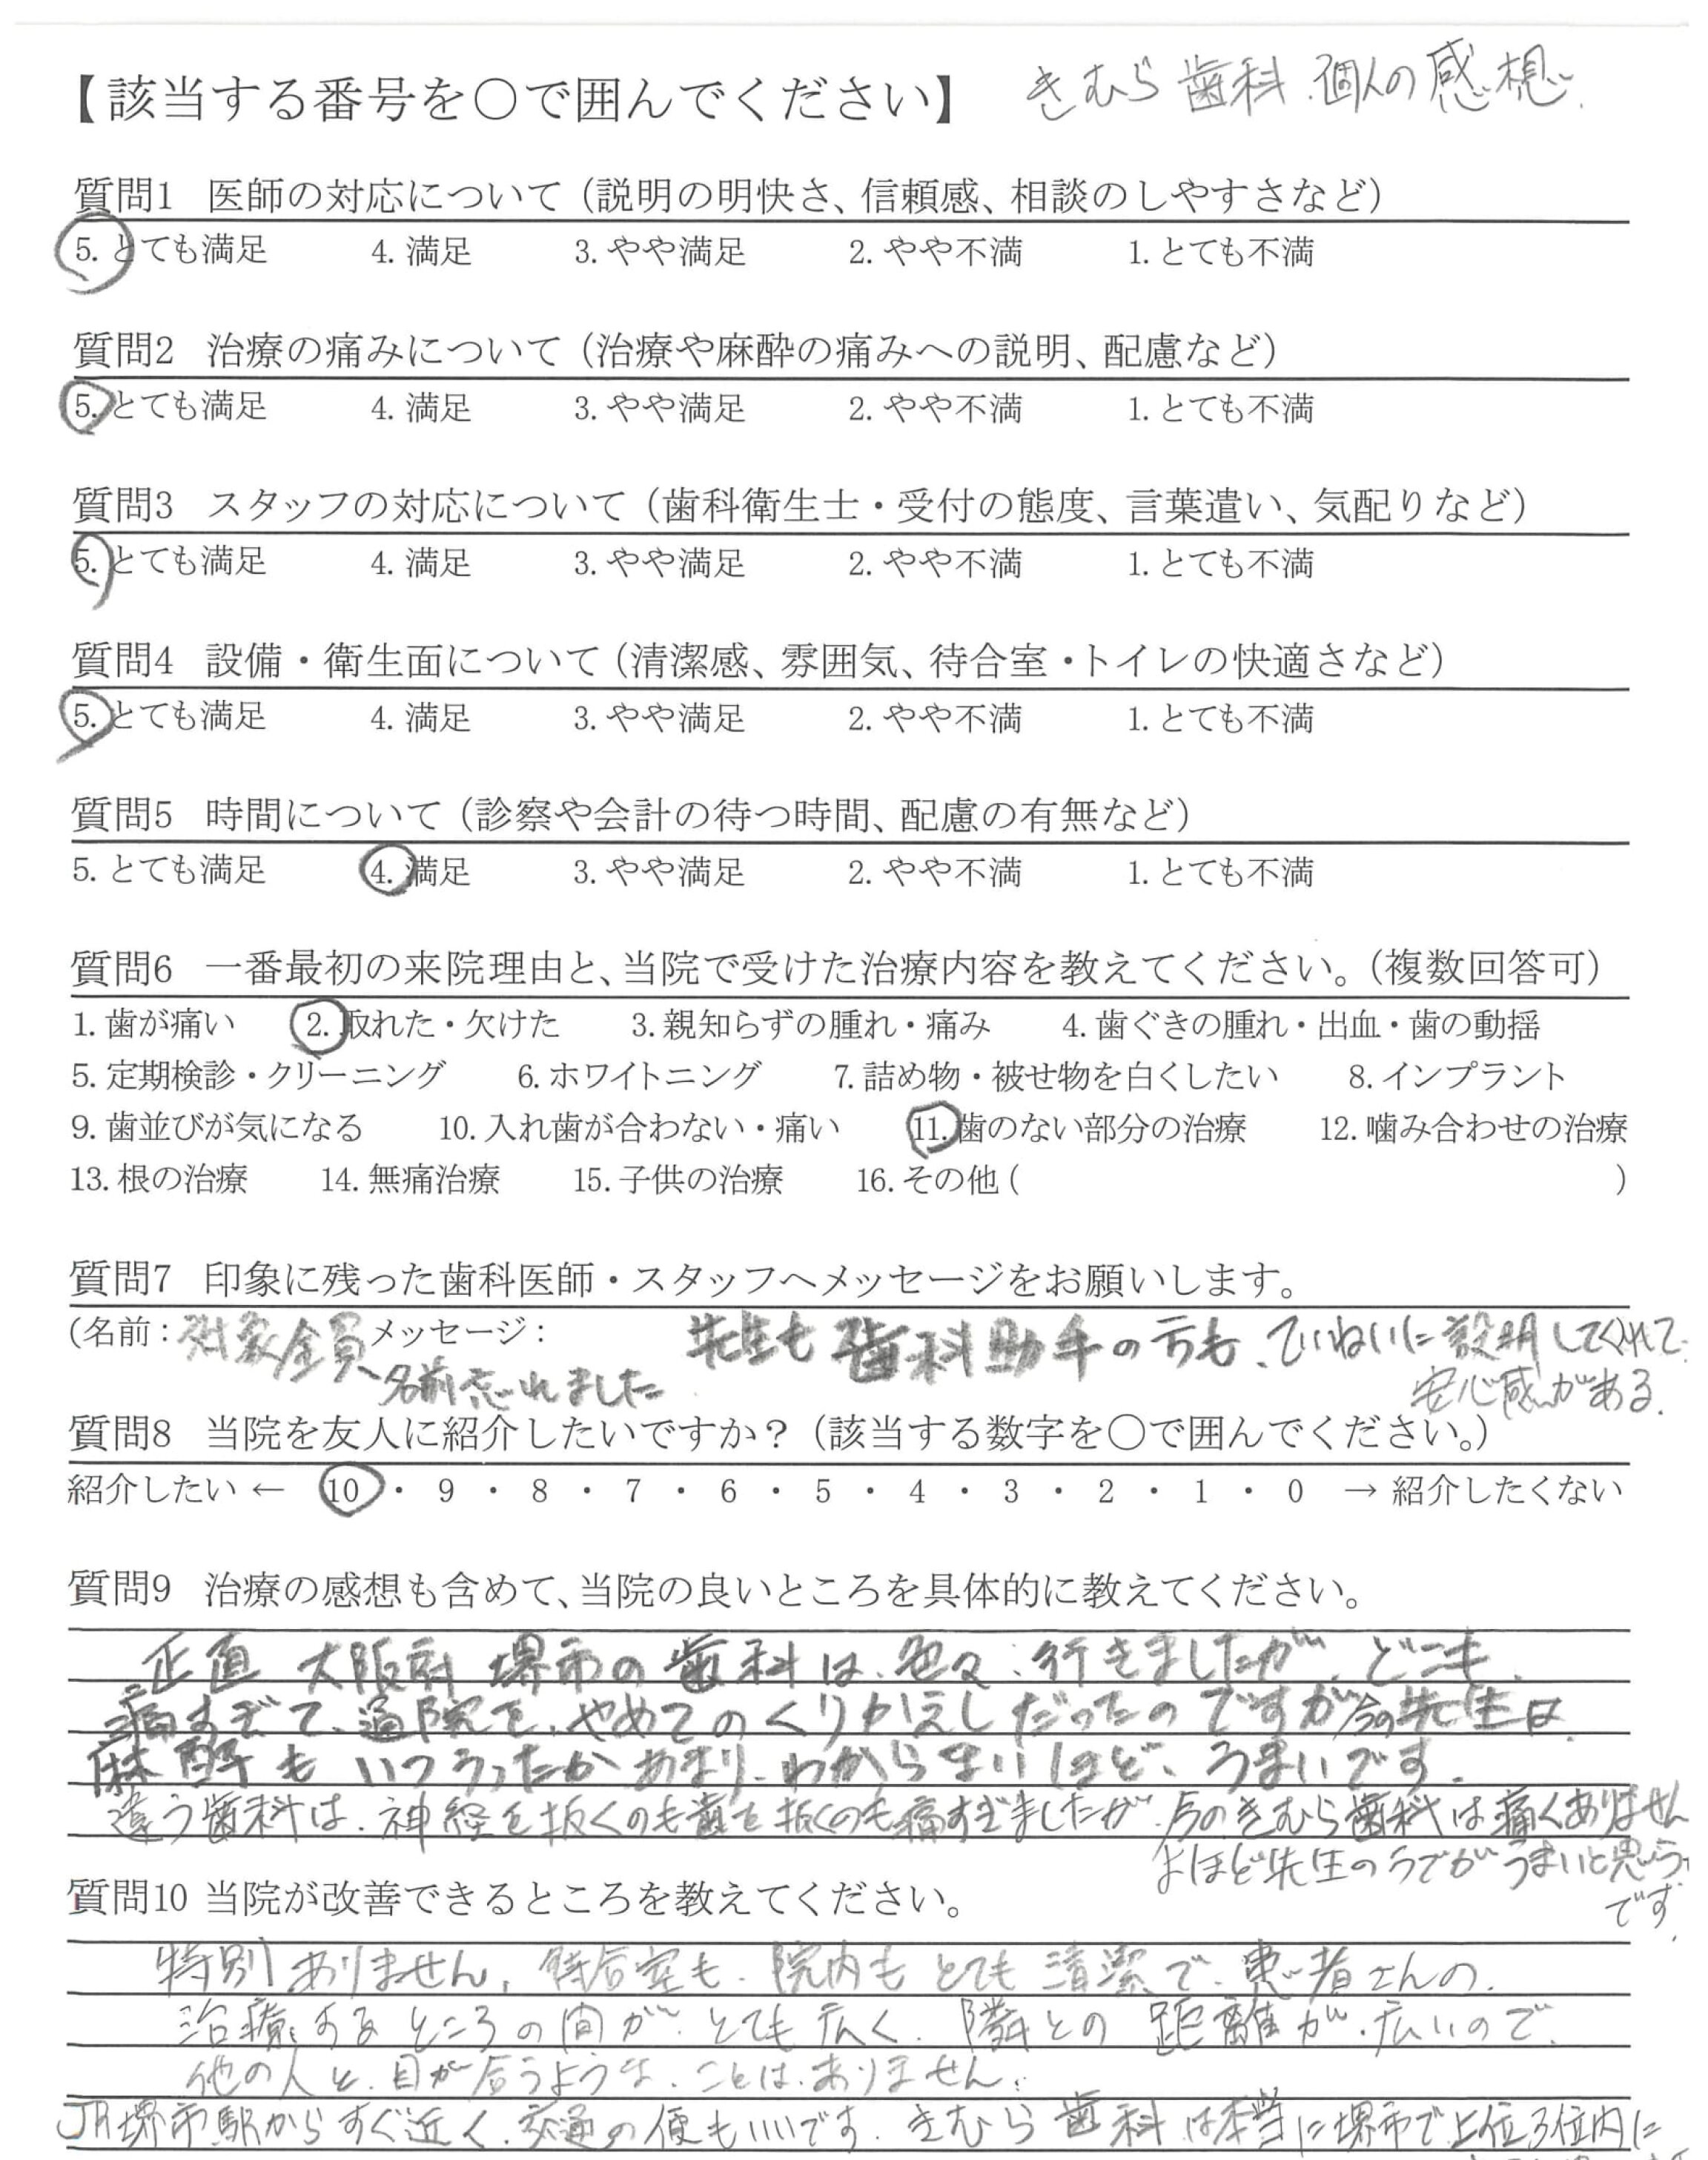 【該当する番号を〇で囲んでください】 きむら歯科.個人の感想.
質問1 医師の対応について（説明の明快さ、信頼感、相談のしやすさなど）
5. とても満足 4. 満足 3. やや満足 2. やや不満 1. とても不満
質問2 治療の痛みについて（治療や麻酔の痛みへの説明、配慮など）
5. とても満足 4. 満足 3. やや満足 2. やや不満 1. とても不満
質問3 スタッフの対応について（歯科衛生士・受付の態度、言葉遣い、気配りなど）
5. とても満足 4. 満足 3. やや満足 2. やや不満 1. とても不満
質問4 設備・衛生面について（清潔感、雰囲気、待合室・トイレの快適さなど）
5. とても満足 4. 満足 3. やや満足 2. やや不満 1. とても不満
質問5 時間について（診察や会計の待つ時間、配慮の有無など）
5. とても満足 4. 満足 3. やや満足 2. やや不満 1. とても不満
質問6 一番最初の来院理由と、当院で受けた治療内容を教えてください。（複数回答可）
1. 歯が痛い 2. 取れた・欠けた 3. 親知らずの腫れ・痛み 4. 歯ぐきの腫れ・出血・歯の動揺
5. 定期検診・クリーニング 6. ホワイトニング 7. 詰め物・被せ物を白くしたい 8. インプラント
9. 歯並びが気になる 10. 入れ歯が合わない・痛い 11. 歯のない部分の治療 12. 噛み合わせの治療
13. 根の治療 14. 無痛治療 15. 子供の治療 16. その他 ( )
質問7 印象に残った歯科医師・スタッフへメッセージをお願いします。
(名前：対象全員 メッセージ： 先生も歯科助手の方も、ていねいに説明してくれて
名前忘れました 安心感がある.
質問8 当院を友人に紹介したいですか？（該当する数字を〇で囲んでください。）
紹介したい ← 10 ・ 9 ・ 8 ・ 7 ・ 6 ・ 5 ・ 4 ・ 3 ・ 2 ・ 1 ・ 0 → 紹介したくない
質問9 治療の感想も含めて、当院の良いところを具体的に教えてください。
正直 大阪府 堺市の歯科は、色々、行きましたが、どこも、
痛すぎて、通院を、やめてのくりかえしだったのですが今の先生は
麻酔もいつうったかあまり、わからないほど、うまいです.
違う歯科は、神経を抜くのも歯を抜くのも痛すぎましたが、今のきむら歯科は痛くありません
よほど先生のうでがうまいと思う
です.
質問10 当院が改善できるところを教えてください。
特別ありません、待合室も、院内もとても清潔で、患者さんの、
治療するところの間が、とても広く、隣との距離が、広いので、
他の人と、目が合うような、ことは、ありません.
JR堺市駅からすぐ近く、交通の便もいいです. きむら歯科は本当に堺市で上位3位内に